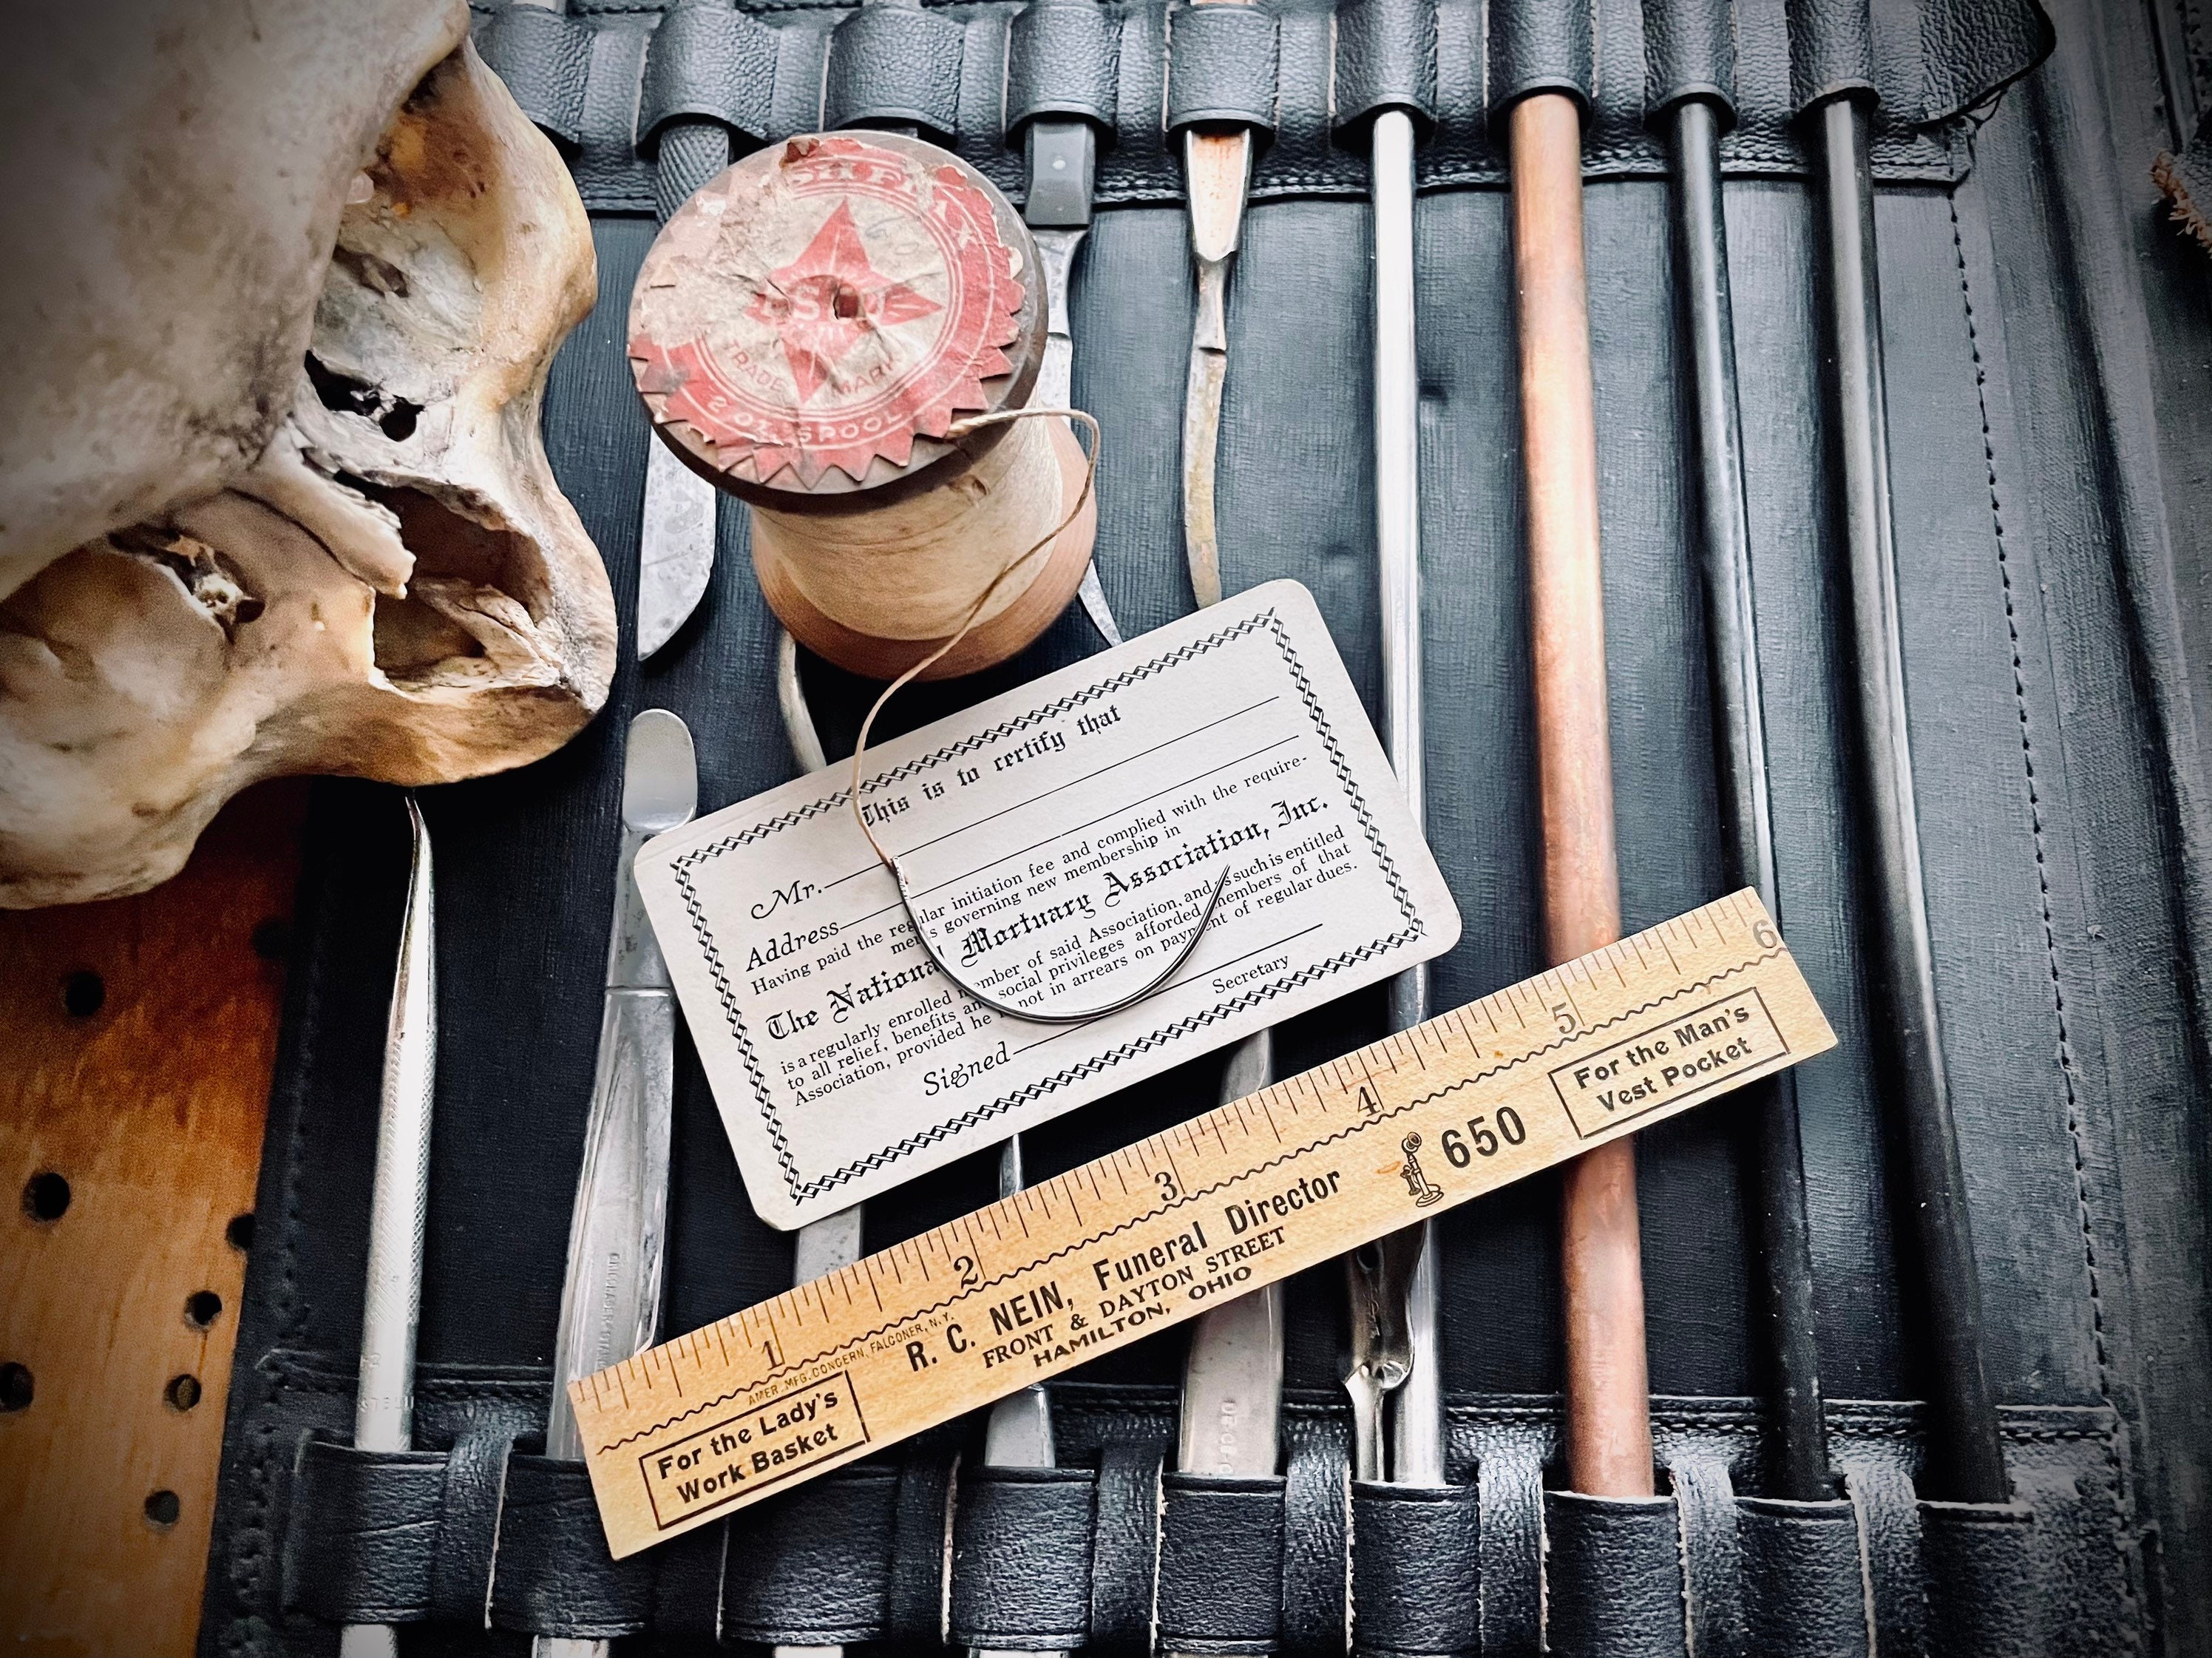 TRADE MARK
2 OZ. SPOOL
This is to certify that
Mr.
Address
Having paid the regular initiation fee and complied with the require-
ments governing new membership in
The National Mortuary Association, Inc.
is a regularly enrolled member of said Association, and as such is entitled
to all relief, benefits and social privileges afforded members of that
Association, provided he is not in arrears on payment of regular dues.
Signed
Secretary
1 2 3 4 5 6
AMER. MFG. CONCERN, FALCONER, N.Y.
For the Lady's
Work Basket
R. C. NEIN, Funeral Director
FRONT & DAYTON STREET
HAMILTON, OHIO
650
For the Man's
Vest Pocket